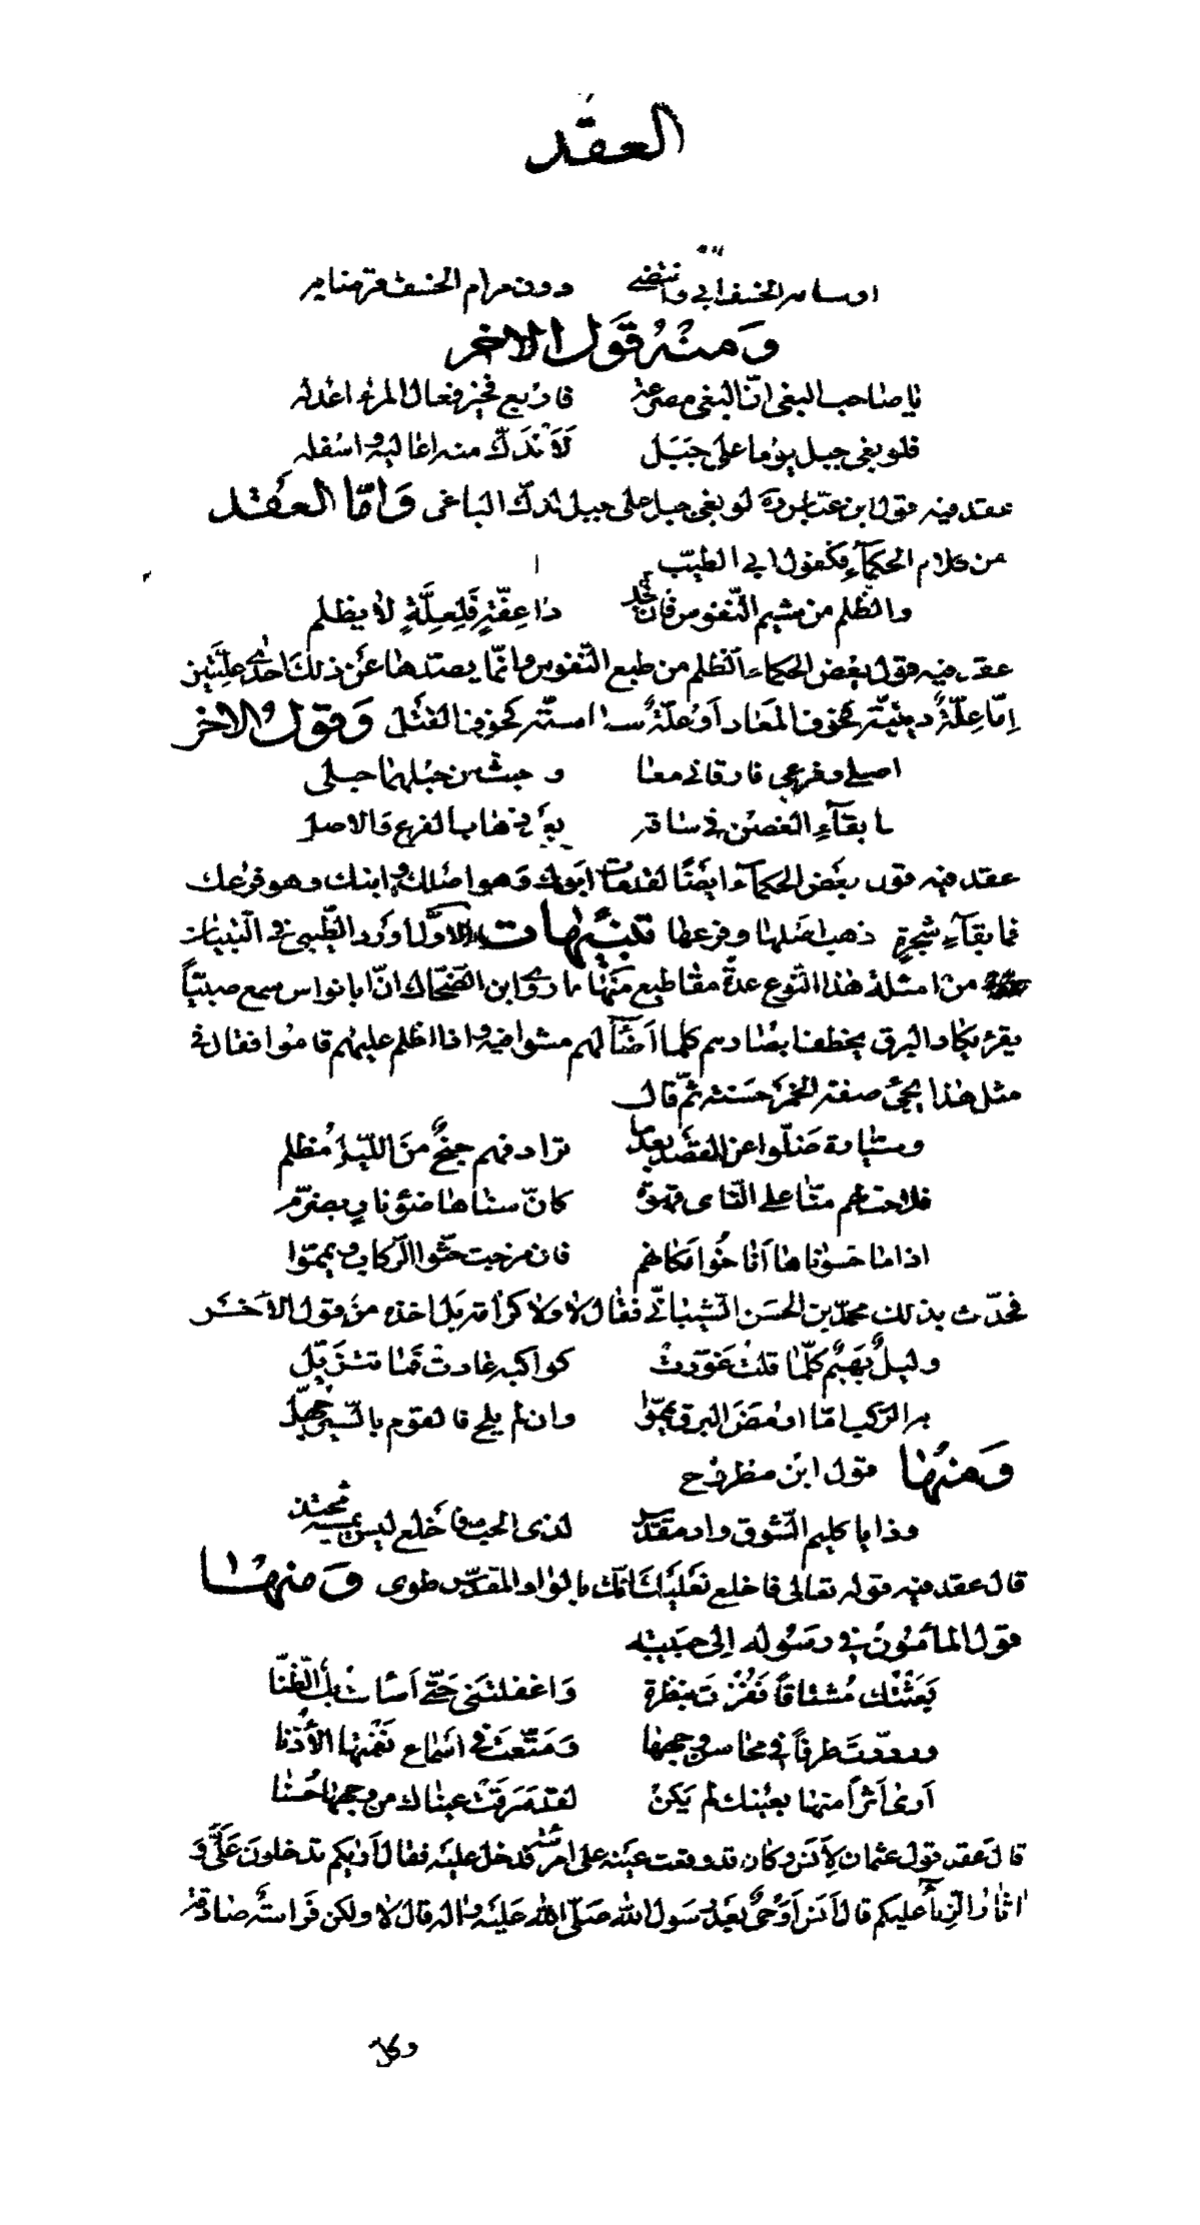 العقد
اوسامر الخسف ابى وانتضى ودون مرام الخسف
وَمنْهُ قَول الاخر
يا صاحب البغى انّ البغى مصرعة فاربع فخير فعال المرء اعدله
فلو بغى جبل يوما على جَبَل لَاَنْدَكّ منه اعاليه واسفله
عقد فيه قول ابن عبّاس رض لو بغى جبل على جبل لدك الباغى وَامّا العقد
من كلام الحكمآء فكقول ابى الطيّب
والظلم من شيم النّفوس فان تجد ذا عِفّةٍ فَلِعِلَّةٍ لا يظلم
عقد فيه قول بعض الحكماء الظلم من طبع النّفوس وانمّا يصدها عَن ذلك احدى علّتَين
اِمّا عِلّةٌ دينيّة كخوف المعاد اَو علّةٌ سياستة كخوف القتل وَقول الاخر
اصلى وفرعى فارقانى معا و جبثّ من حبلهما حبلى
ما بقآءِ الغصن فى ساقه بعد ذهاب الفرع والاصل
عقد فيه قول بعض الحكمآء ايضًا لقد مات ابوك وَهو اصلك وابنك وهو فرعك
فما بقآء شجرةٍ ذهب اصلها وفرعها تنبيهات الاوّل اورد الطّيبى فى التبيان
من امثلة هذا النّوع عدةً مقاطيع منها ما روى ابن الضحّاك انّ ابا نواس سمع صبيّاً
يقرء يكاد البرق يخطف ابصارهم كلما اضآء لهم مشوا فيه واذا اظلم عليهم قاموا فقال فى
مثل هذا يجئ صفة الخمر حَسَنة ثمّ قال
وسيّارة ضَلّوا عن القصد بعد ما ترادفهم جنحٌ منَ اللّيل مُظلم
فلاحت لهم منّا على النّاى قهوة كانّ سناها ضوء نارٍ يضرّم
اذا ما حسوناها اَناخُوا مكانهم فان مزجت حثّوا الرّكاب ويمّموا
فحدّث بذلك محمّد بن الحسَن الشّيبانىّ فقال لا ولا كرامة بَل اخذه من قول الاخَر
وليلٌ بَهيمٌ كلّما قلتُ غوّرتْ كواكبه عادتْ فَما تتزيّل
به الرّكب امّا اومَضَ البرق يمّموا وان لم يلح فالقوم بالسّير جهّل
وَمنها قول ابن مطروح
وذا يا كليم الشّوق واد مقدّس لذى الحب فاخلع ليس يمشيه محتذ
قال عقد فيه قوله تعالى فاخلع نعليك انّك بالواد المقدّس طوى وَمنها
قول المأمون فى رسُوله اِلى حبيبته
بَعَثْتُك مُشتاقاً فَفُزْتَ بنظرة وَاغفلتنى حَتّى اَسأت بك الظّنّا
ورددّت طرفاً فى محاسن وجهها وَمَتّعَتَ فى اسماع نَغْمتها الاُذنا
اَرى اَثراً منها بعينك لم يَكنْ لقد سَرقَتْ عيناك من وجهها حُسْنا
قال عقد قول عثمان لاَنس وكان قد وقعت عينه على امرئة فدخل عليه فقال اَو يكم تدخلون عَلَىَّ وَ
اثار الزنا عليكم قال اَنس اَوَحىٌ بعد رَسول الله صَلّى الله عَليَه واله قال لا ولكن فَراسةٌ صادقة
وكل